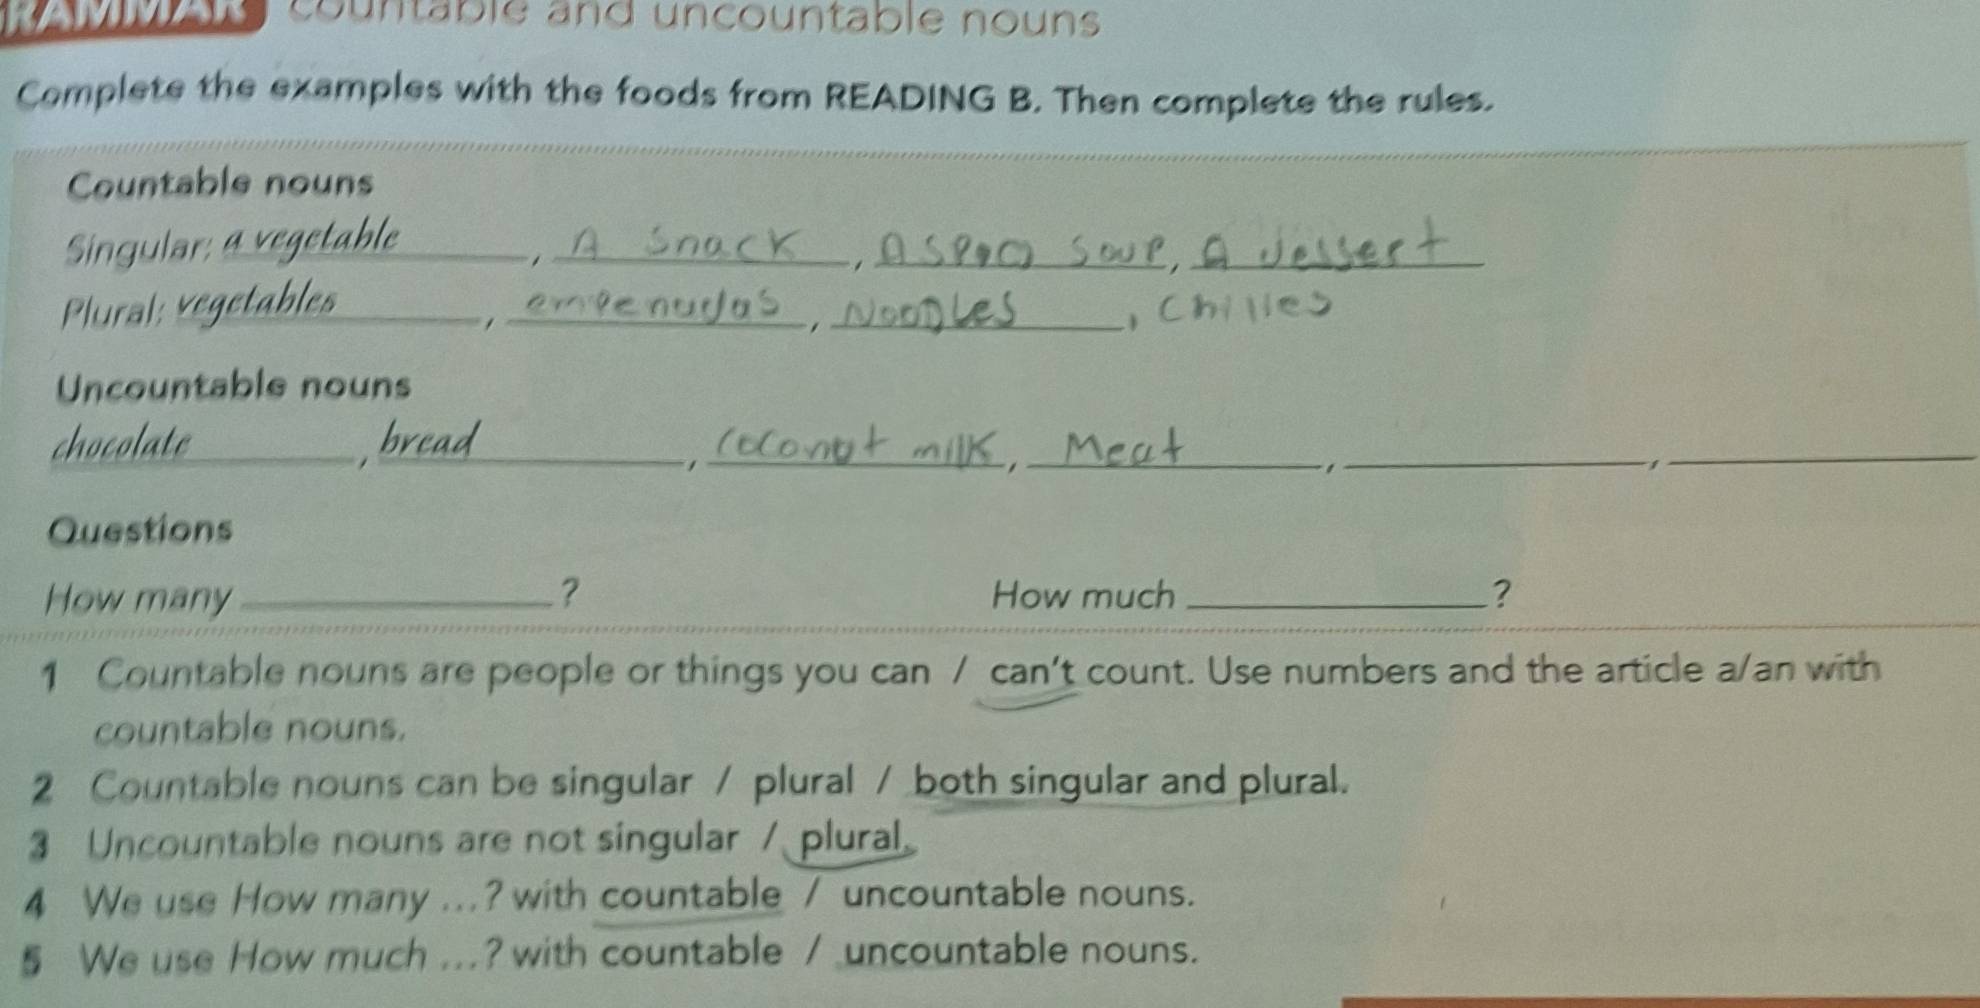 GRAMMAR countable and uncountable nouns
Complete the examples with the foods from READING B. Then complete the rules.
Countable nouns
Singular: a vegetable, A snack, A soup, A dessert
Plural: vegetables, empenadas, Noodles, chilles
Uncountable nouns
chocolate, bread, coconut milk, Meat, ,
Questions
How many ? How much ?
1 Countable nouns are people or things you can / can't count. Use numbers and the article a/an with
countable nouns.
2 Countable nouns can be singular / plural / both singular and plural.
3 Uncountable nouns are not singular / plural.
4 We use How many ...? with countable / uncountable nouns.
5 We use How much ...? with countable / uncountable nouns.